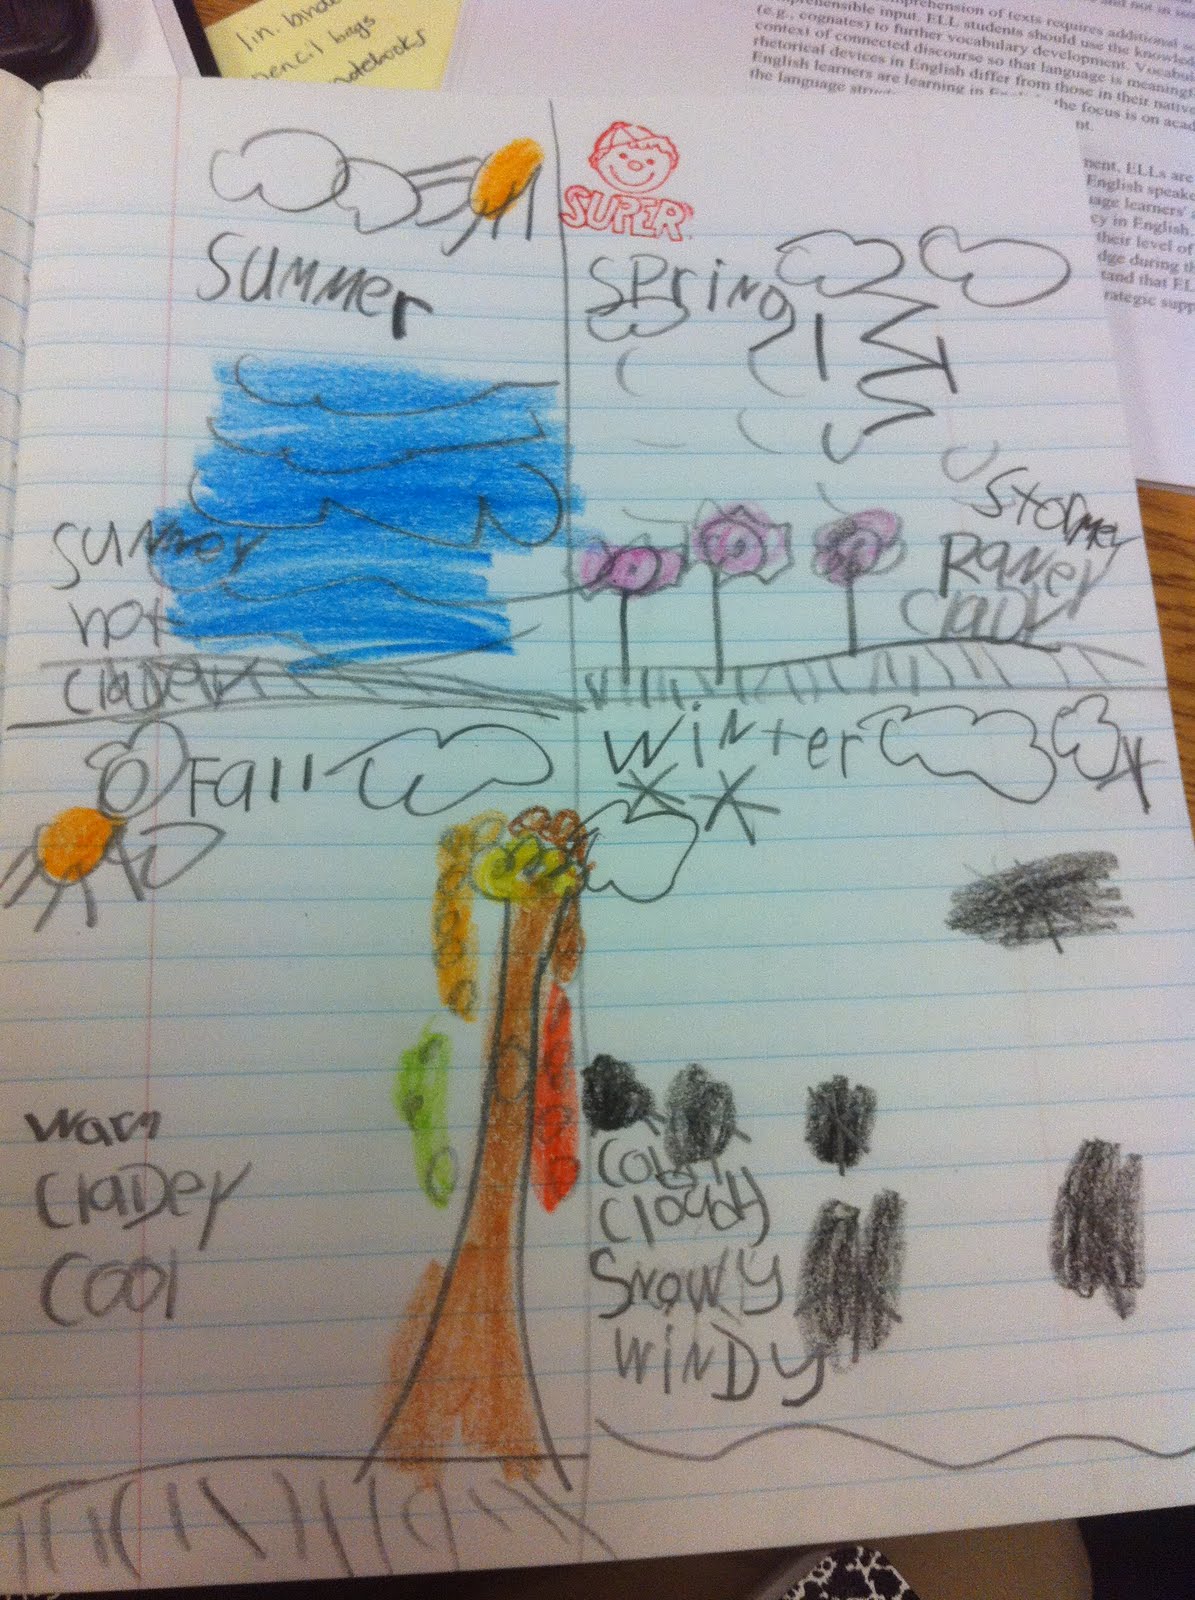 1in. binde
pencil bags
notebooks
and not in iso
mprehension of texts requires additional sc
(e.g., cognates) to further vocabulary development. Vocabul
context of connected discourse so that language is meaningf
rhetorical devices in English differ from those in their native
English learners are learning in the focus is on acad
the language nt.
ment. ELLs are
English speake
uage learners'
cy in English.
their level of
dge during th
tand that EL
rategic supp
SUPER
Summer
Spring
Sunney
hot
Cladey
Stormey
Raney
Clady
Fall
Winter
Warm
Cladey
Cool
Cold
Cloudy
Snowy
Windy